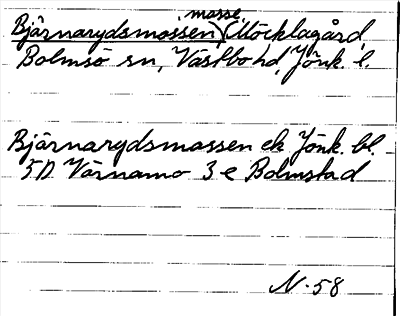 mosse
Bjärnarydsmossen, (Möcklagård,
Bolmsö sn, Västbo hd, Jönk. l.
Bjärnarydsmossen ek Jönk. bl.
5D Värnamo 3 e Bolmstad
N. 58